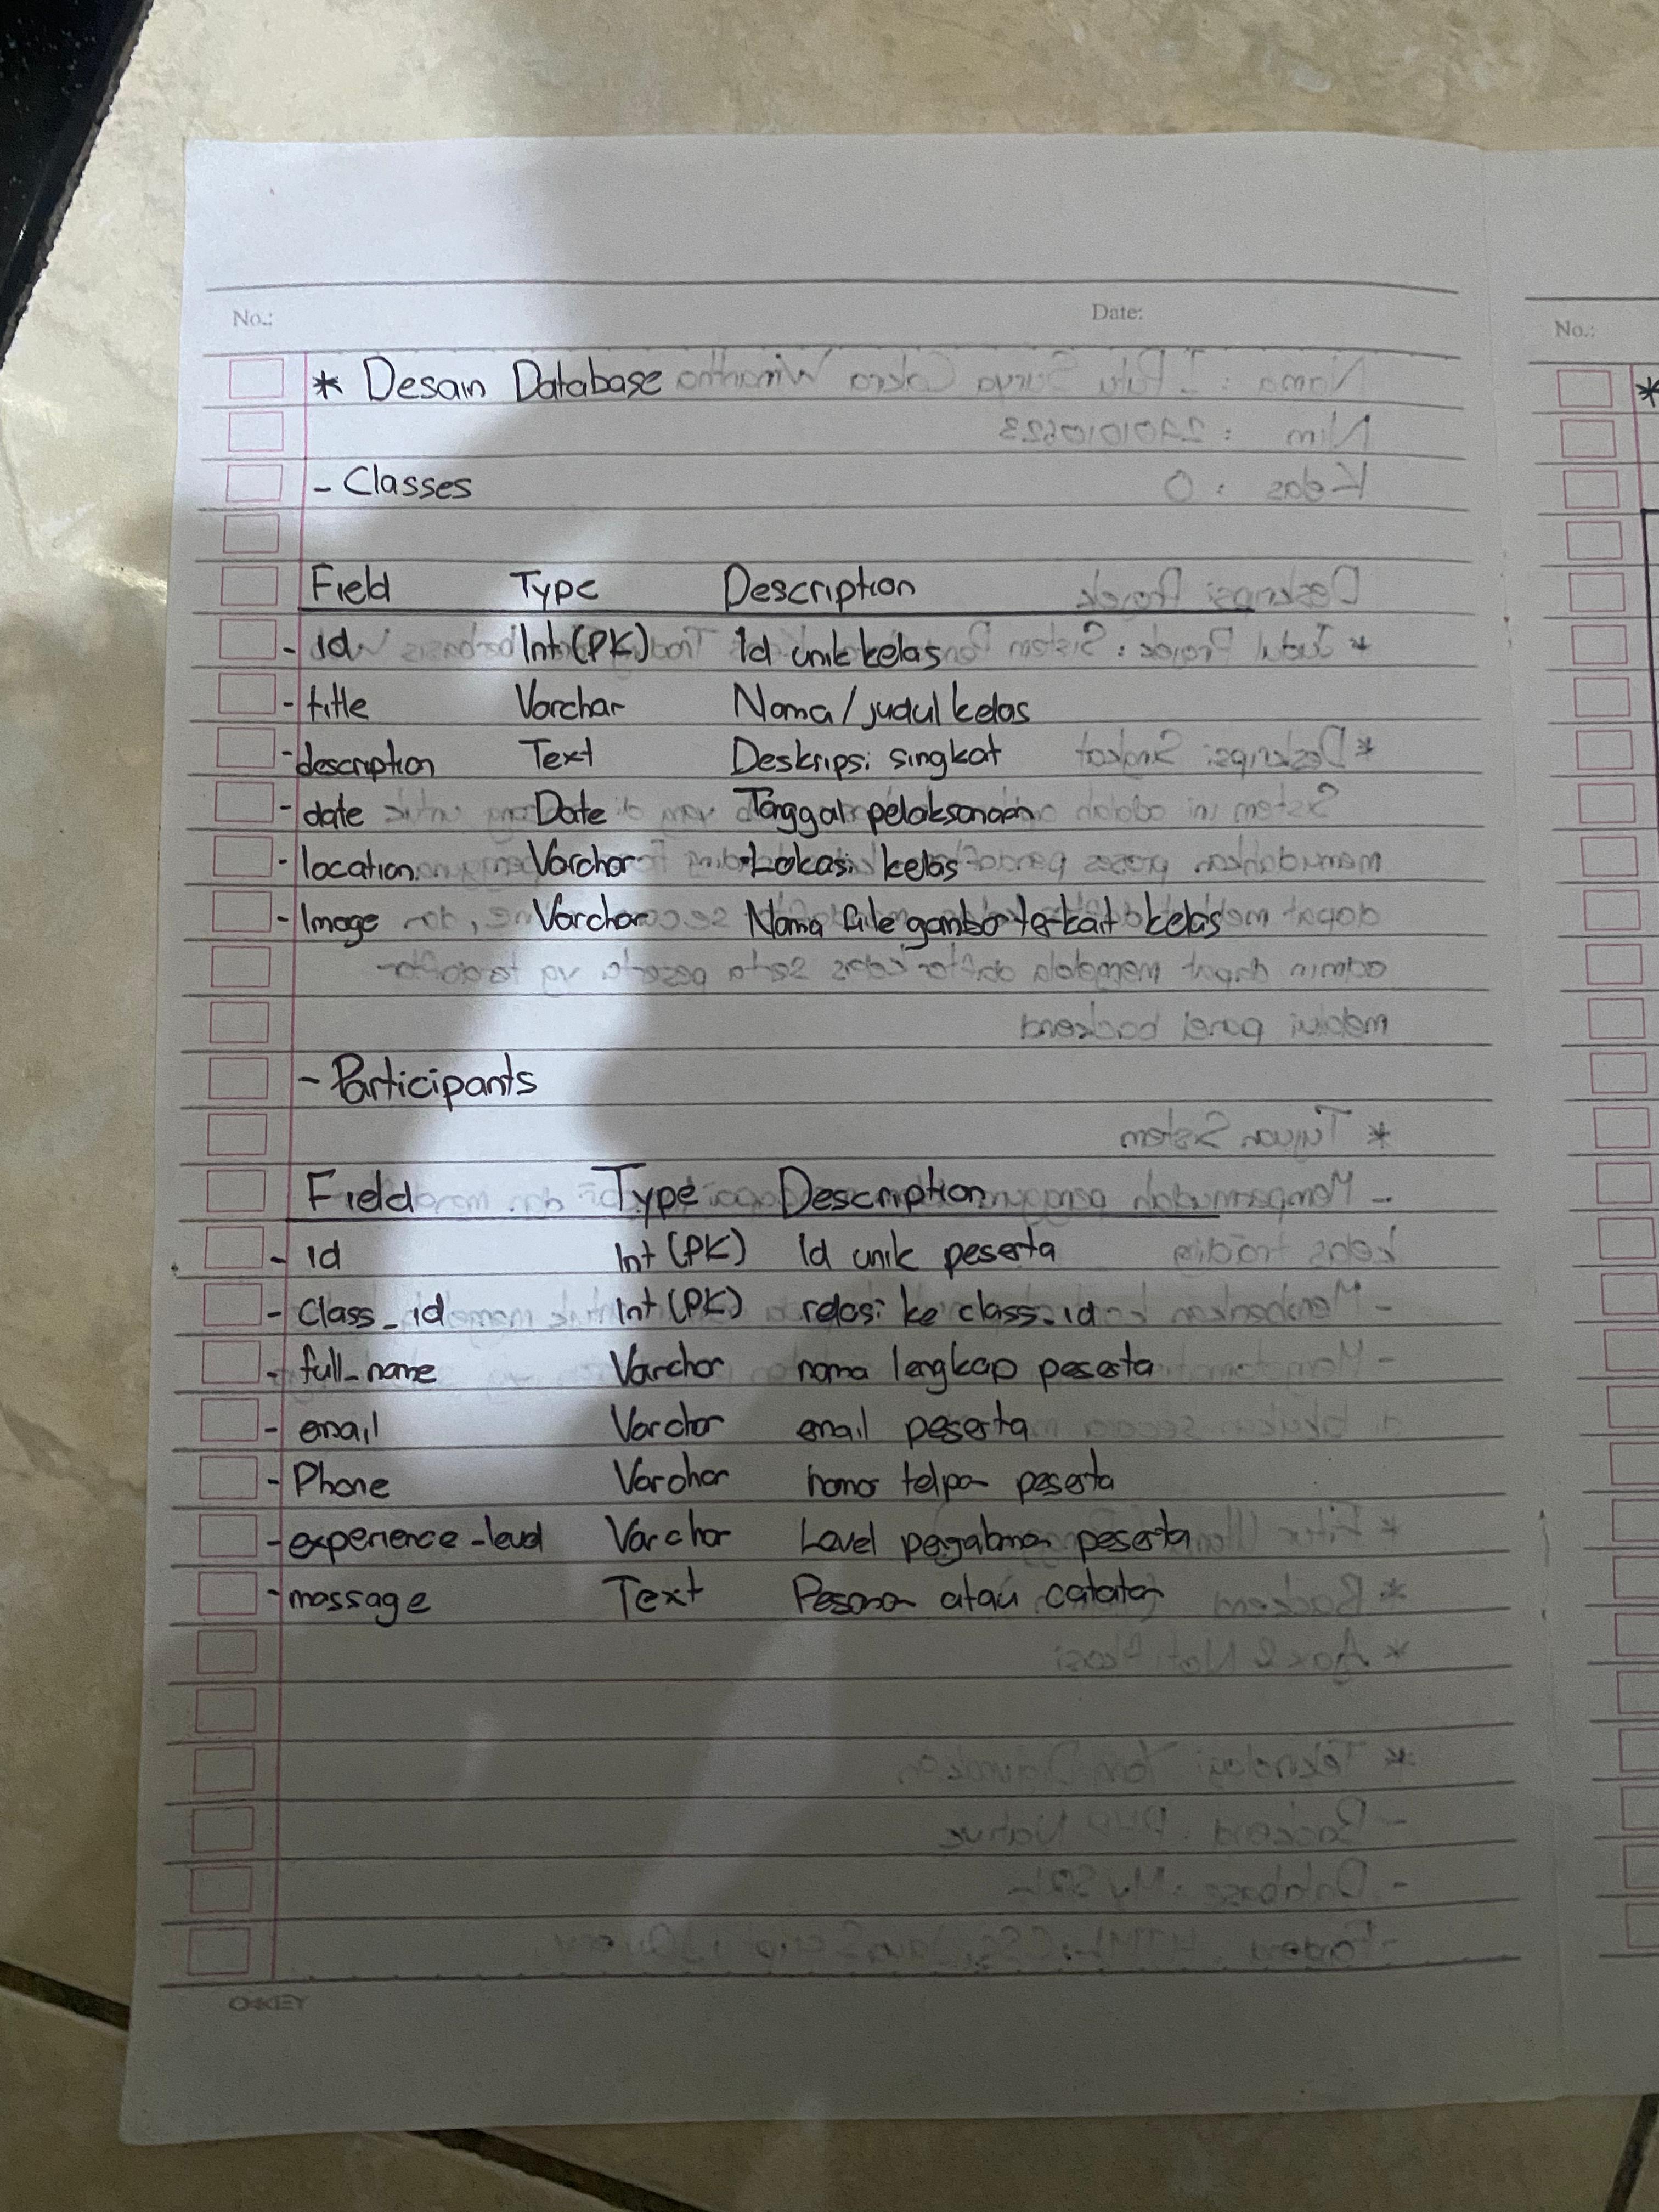 No.: Date:
* Desain Database
- Classes
Field Type Description
- id Int (PK) Id unik kelas
- title Varchar Nama / judul kelas
- description Text Deskripsi singkat
- date Date Tanggal pelaksanaan
- location Varchar Lokasi kelas
- Image Varchar Nama file gambar terkait kelas
- Participants
Field Type Description
- id Int (PK) Id unik peserta
- Class_id Int (PK) relasi ke class.id
- full_name Varchar nama lengkap peserta
- email Varchar email peserta
- Phone Varchar nomor telpon peserta
- experience_level Varchar Level peserta
- massage Text atau catatan
O-KEY
No.:
*